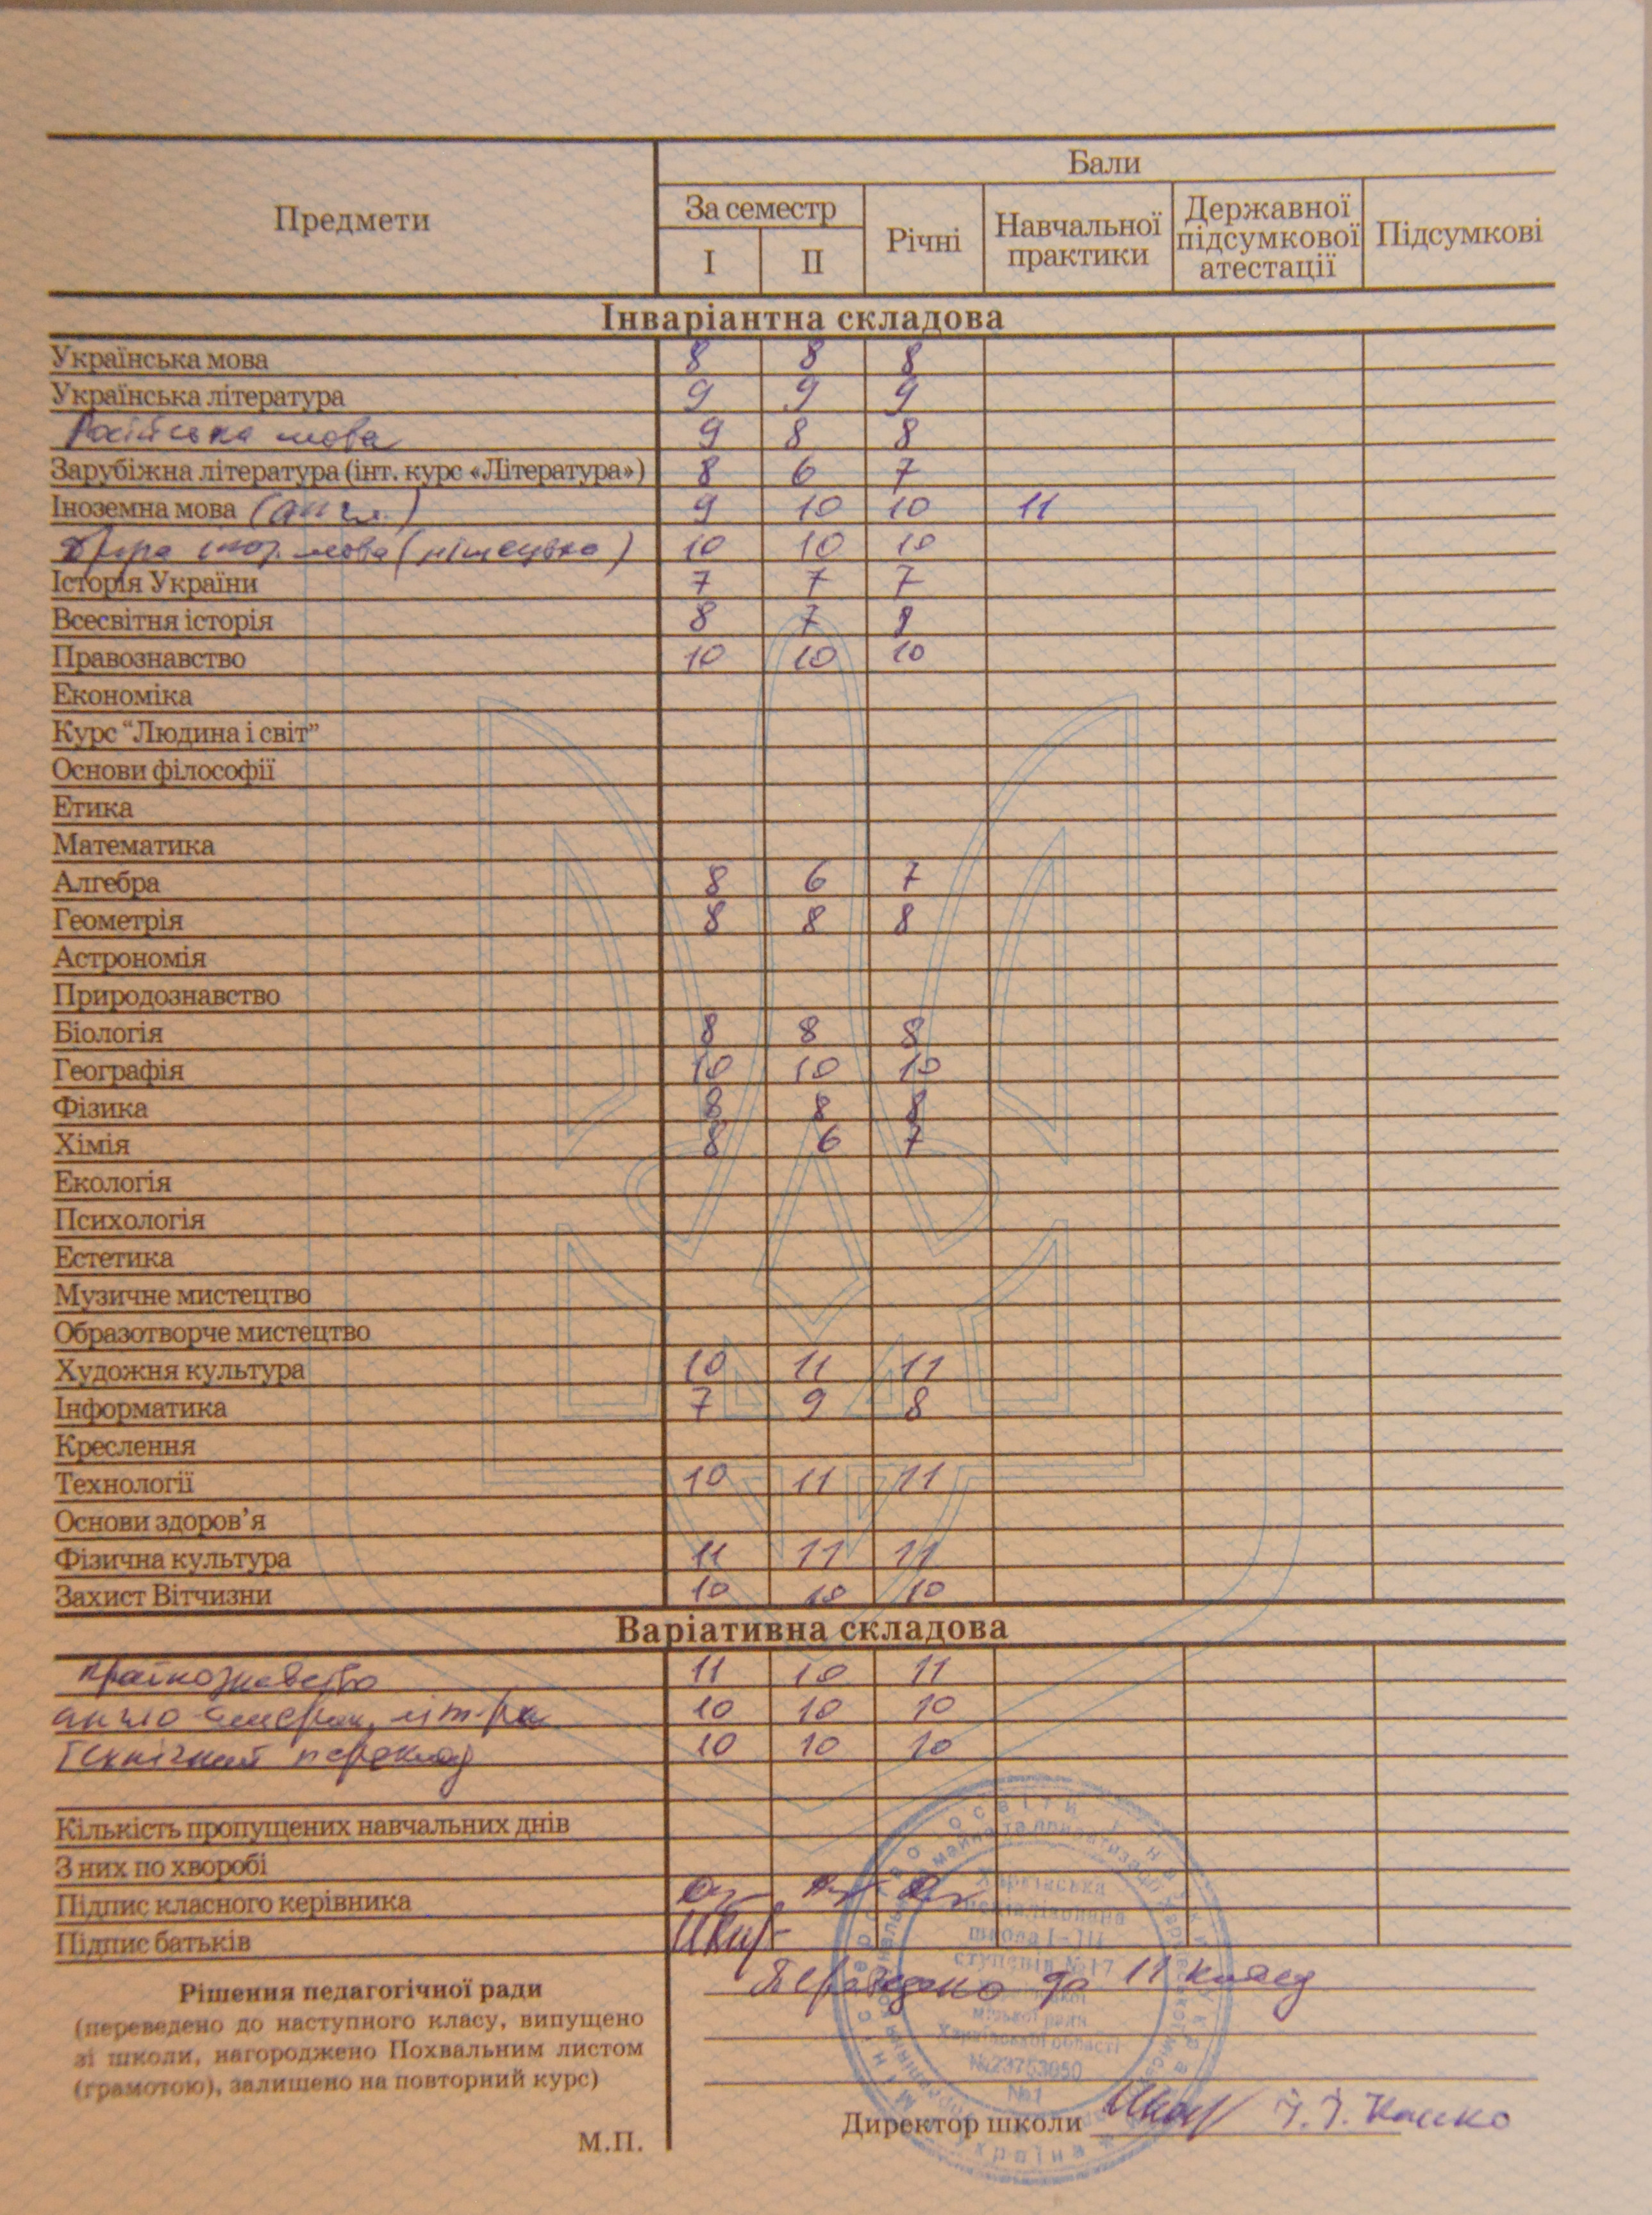 Предмети
Бали
За семестр
I II
Річні
Навчальної практики
Державної підсумкової атестації
Підсумкові
Інваріантна складова
Українська мова 8 8 8
Українська література 9 9 9
Російська мова 9 8 8
Зарубіжна література (інт. курс «Література») 8 6 7
Іноземна мова (англ.) 9 10 10 11
Друга іноз. мова (німецька) 10 10 10
Історія України 7 7 7
Всесвітня історія 8 7 8
Правознавство 10 10 10
Економіка
Курс “Людина і світ”
Основи філософії
Етика
Математика
Алгебра 8 6 7
Геометрія 8 8 8
Астрономія
Природознавство
Біологія 8 8 8
Географія 10 10 10
Фізика 8 8 8
Хімія 8 6 7
Екологія
Психологія
Естетика
Музичне мистецтво
Образотворче мистецтво
Художня культура 10 11 11
Інформатика 7 9 8
Креслення
Технології 10 11 11
Основи здоров’я
Фізична культура 11 11 11
Захист Вітчизни 10 10 10
Варіативна складова
країнознавство 11 10 11
англо-америк. літ-ра 10 10 10
Технічний переклад 10 10 10
Кількість пропущених навчальних днів
З них по хворобі
Підпис класного керівника
Підпис батьків
Рішення педагогічної ради
(переведено до наступного класу, випущено
зі школи, нагороджено Похвальним листом
(грамотою), залишено на повторний курс)
М.П.
Переведено до 11 класу
Харківська
спеціалізована
школа І-ІІІ
ступенів №17
Харківської
міської ради
Харківської області
№23753050
№1
Директор школи